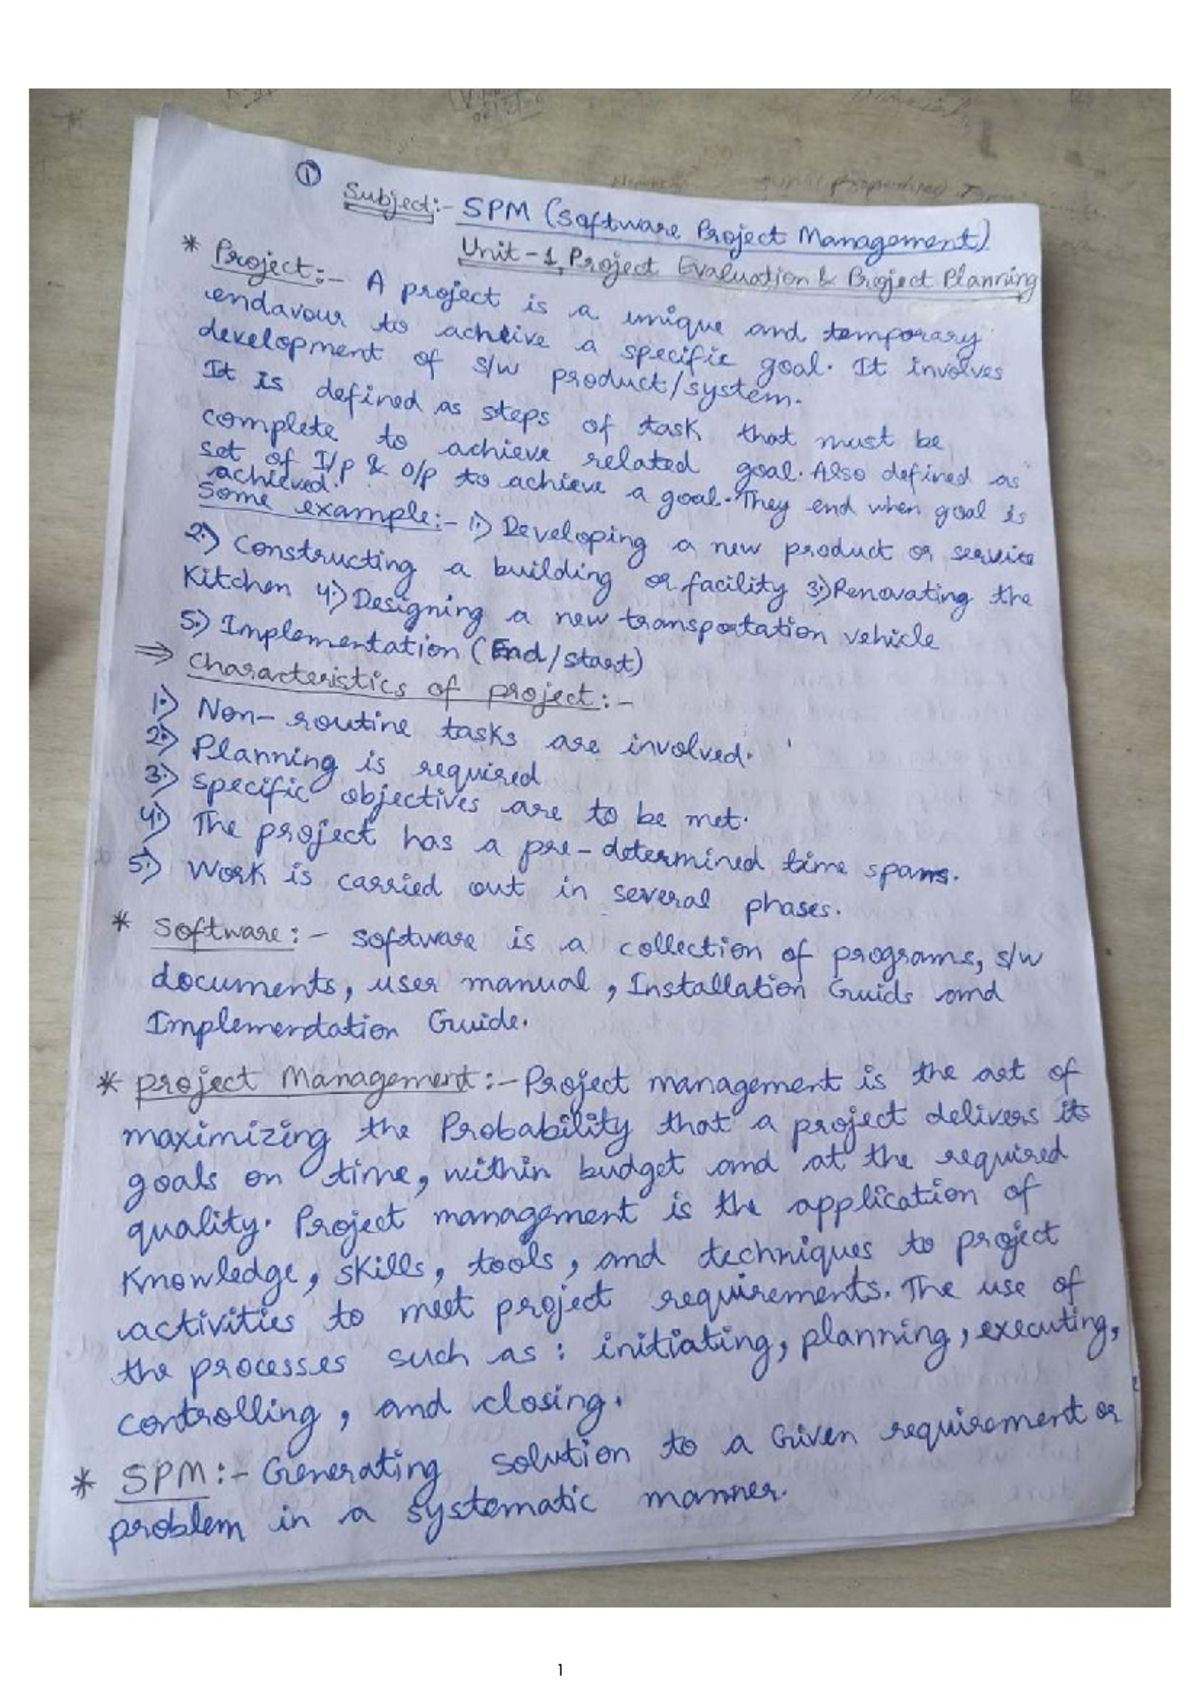 ①
Subject:- SPM (Software Project Management)
Unit-1, Project Evaluation & Project Planning
* Project:- A project is a unique and temporary
endavour to acheive a specific goal. It involves
development of s/w product/system.
It is defined as steps of task that must be
complete to achieve related goal. Also defined as
set of I/p & O/p to achieve a goal. They end when goal is
achieved.
Some example:- 1.) Developing a new product or service
2.) Constructing a building or facility 3.) Renovating the
Kitchen 4.) Designing a new transportation vehicle
5.) Implementation (End/start)
⇒ Characteristics of project:-
1.) Non-routine tasks are involved.
2.) Planning is required
3.) specific objectives are to be met.
4.) The project has a pre-determined time spans.
5.) Work is carried out in several phases.
* Software:- software is a collection of programs, s/w
documents, user manual, Installation Guids and
Implementation Guide.
* project Management:- Project management is the art of
maximizing the Probability that a project delivers its
goals on time, within budget and at the required
quality. Project management is the application of
Knowledge, skills, tools, and techniques to project
activities to meet project requirements. The use of
the processes such as: initiating, planning, executing,
controlling, and closing.
* SPM:- Generating solution to a Given requirement or
problem in a systematic manner.
1